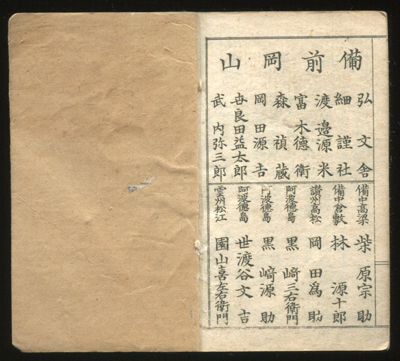 備前岡山
弘文舎
細謹社
渡邉源米
富木徳衛
森禎蔵
岡田源吉
毋良田益太郎
武内弥三郎
備中高梁 柴原宗助
備中倉敷 林源十郎
讃州高松 岡田為助
阿波徳島 黒崎三右衛門
阿波徳島 黒崎源助
阿波徳島 世渡谷文吉
雲州松江 園山喜左右衛門